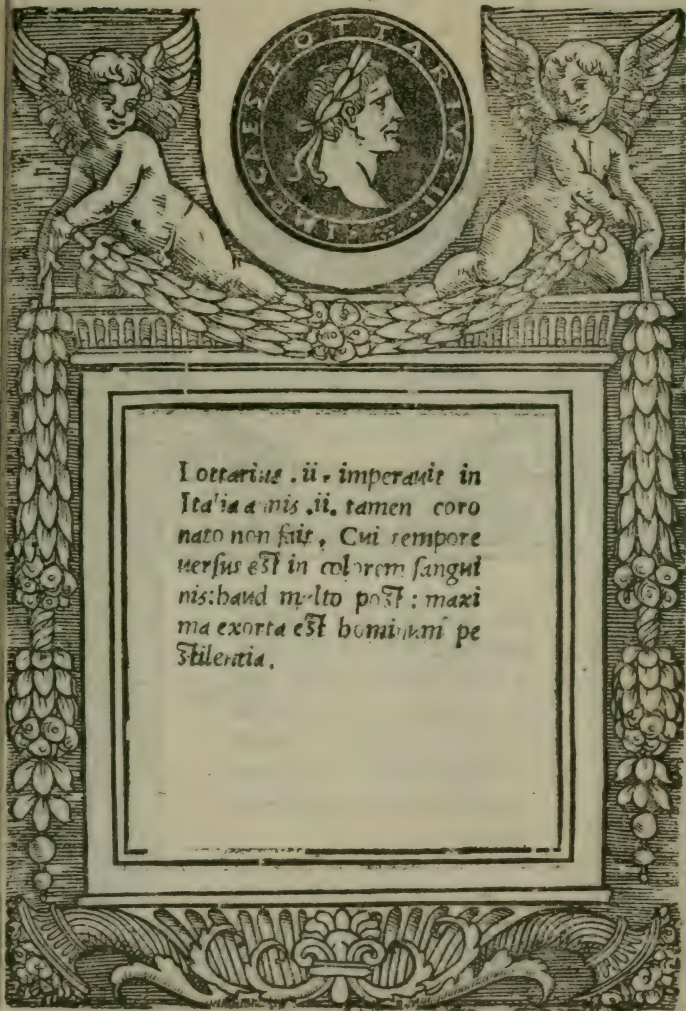 IMP. CAES. LOTTARIVS. II.
Lottarius .ii. imperauit in
Italia annis .ii. tamen coro
nato non fuit. Cui tempore
uersus est in colorem sangui
nis: haud multo post: maxi
ma exorta est hominum pe
stilentia.